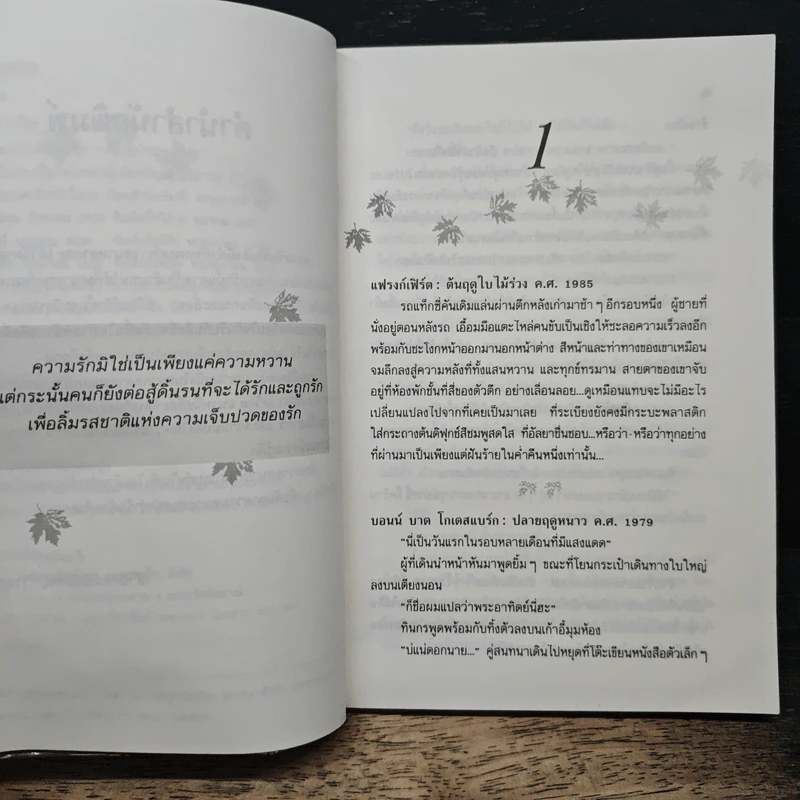 ความรักมิใช่เป็นเพียงแค่ความหวาน
แต่กระนั้นคนก็ยังต่อสู้ดิ้นรนที่จะได้รักและถูกรัก
เพื่อลิ้มรสชาติแห่งความเจ็บปวดของรัก
1
แฟรงก์เฟิร์ต : ต้นฤดูใบไม้ร่วง ค.ศ. 1985
รถแท็กซี่คันเดิมแล่นผ่านตึกหลังเก่ามาช้า ๆ อีกรอบหนึ่ง ผู้ชายที่
นั่งอยู่ตอนหลังรถ เอื้อมมือแตะไหล่คนขับเป็นเชิงให้ชะลอความเร็วลงอีก
พร้อมกับชะโงกหน้าออกมานอกหน้าต่าง สีหน้าและท่าทางของเขาเหมือน
จมลึกลงสู่ความหลังที่ทั้งแสนหวาน และทุกข์ทรมาน สายตาของเขาจับ
อยู่ที่ห้องพักชั้นที่สี่ของตัวตึก อย่างเลื่อนลอย...ดูเหมือนแทบจะไม่มีอะไร
เปลี่ยนแปลงไปจากที่เคยเป็นมาเลย ที่ระเบียงยังคงมีกระบะพลาสติก
ใส่กระถางต้นดิฟุกซ์สีชมพูสดใส ที่อัลยาชื่นชอบ...หรือว่า - หรือว่าทุกอย่าง
ที่ผ่านมาเป็นเพียงแต่ฝันร้ายในค่ำคืนหนึ่งเท่านั้น...
บอนน์ บาด โกเดสแบร์ก : ปลายฤดูหนาว ค.ศ. 1979
"นี่เป็นวันแรกในรอบหลายเดือนที่มีแสงแดด"
ผู้ที่เดินนำหน้าหันมาพูดยิ้ม ๆ ขณะที่โยนกระเป๋าเดินทางใบใหญ่
ลงบนเตียงนอน
"ก็ชื่อผมแปลว่าพระอาทิตย์นี่ฮะ"
ทินกรพูดพร้อมกับทิ้งตัวลงบนเก้าอี้มุมห้อง
"บ่แน่ดอกนาย..." คู่สนทนาเดินไปหยุดที่โต๊ะเขียนหนังสือตัวเล็ก ๆ